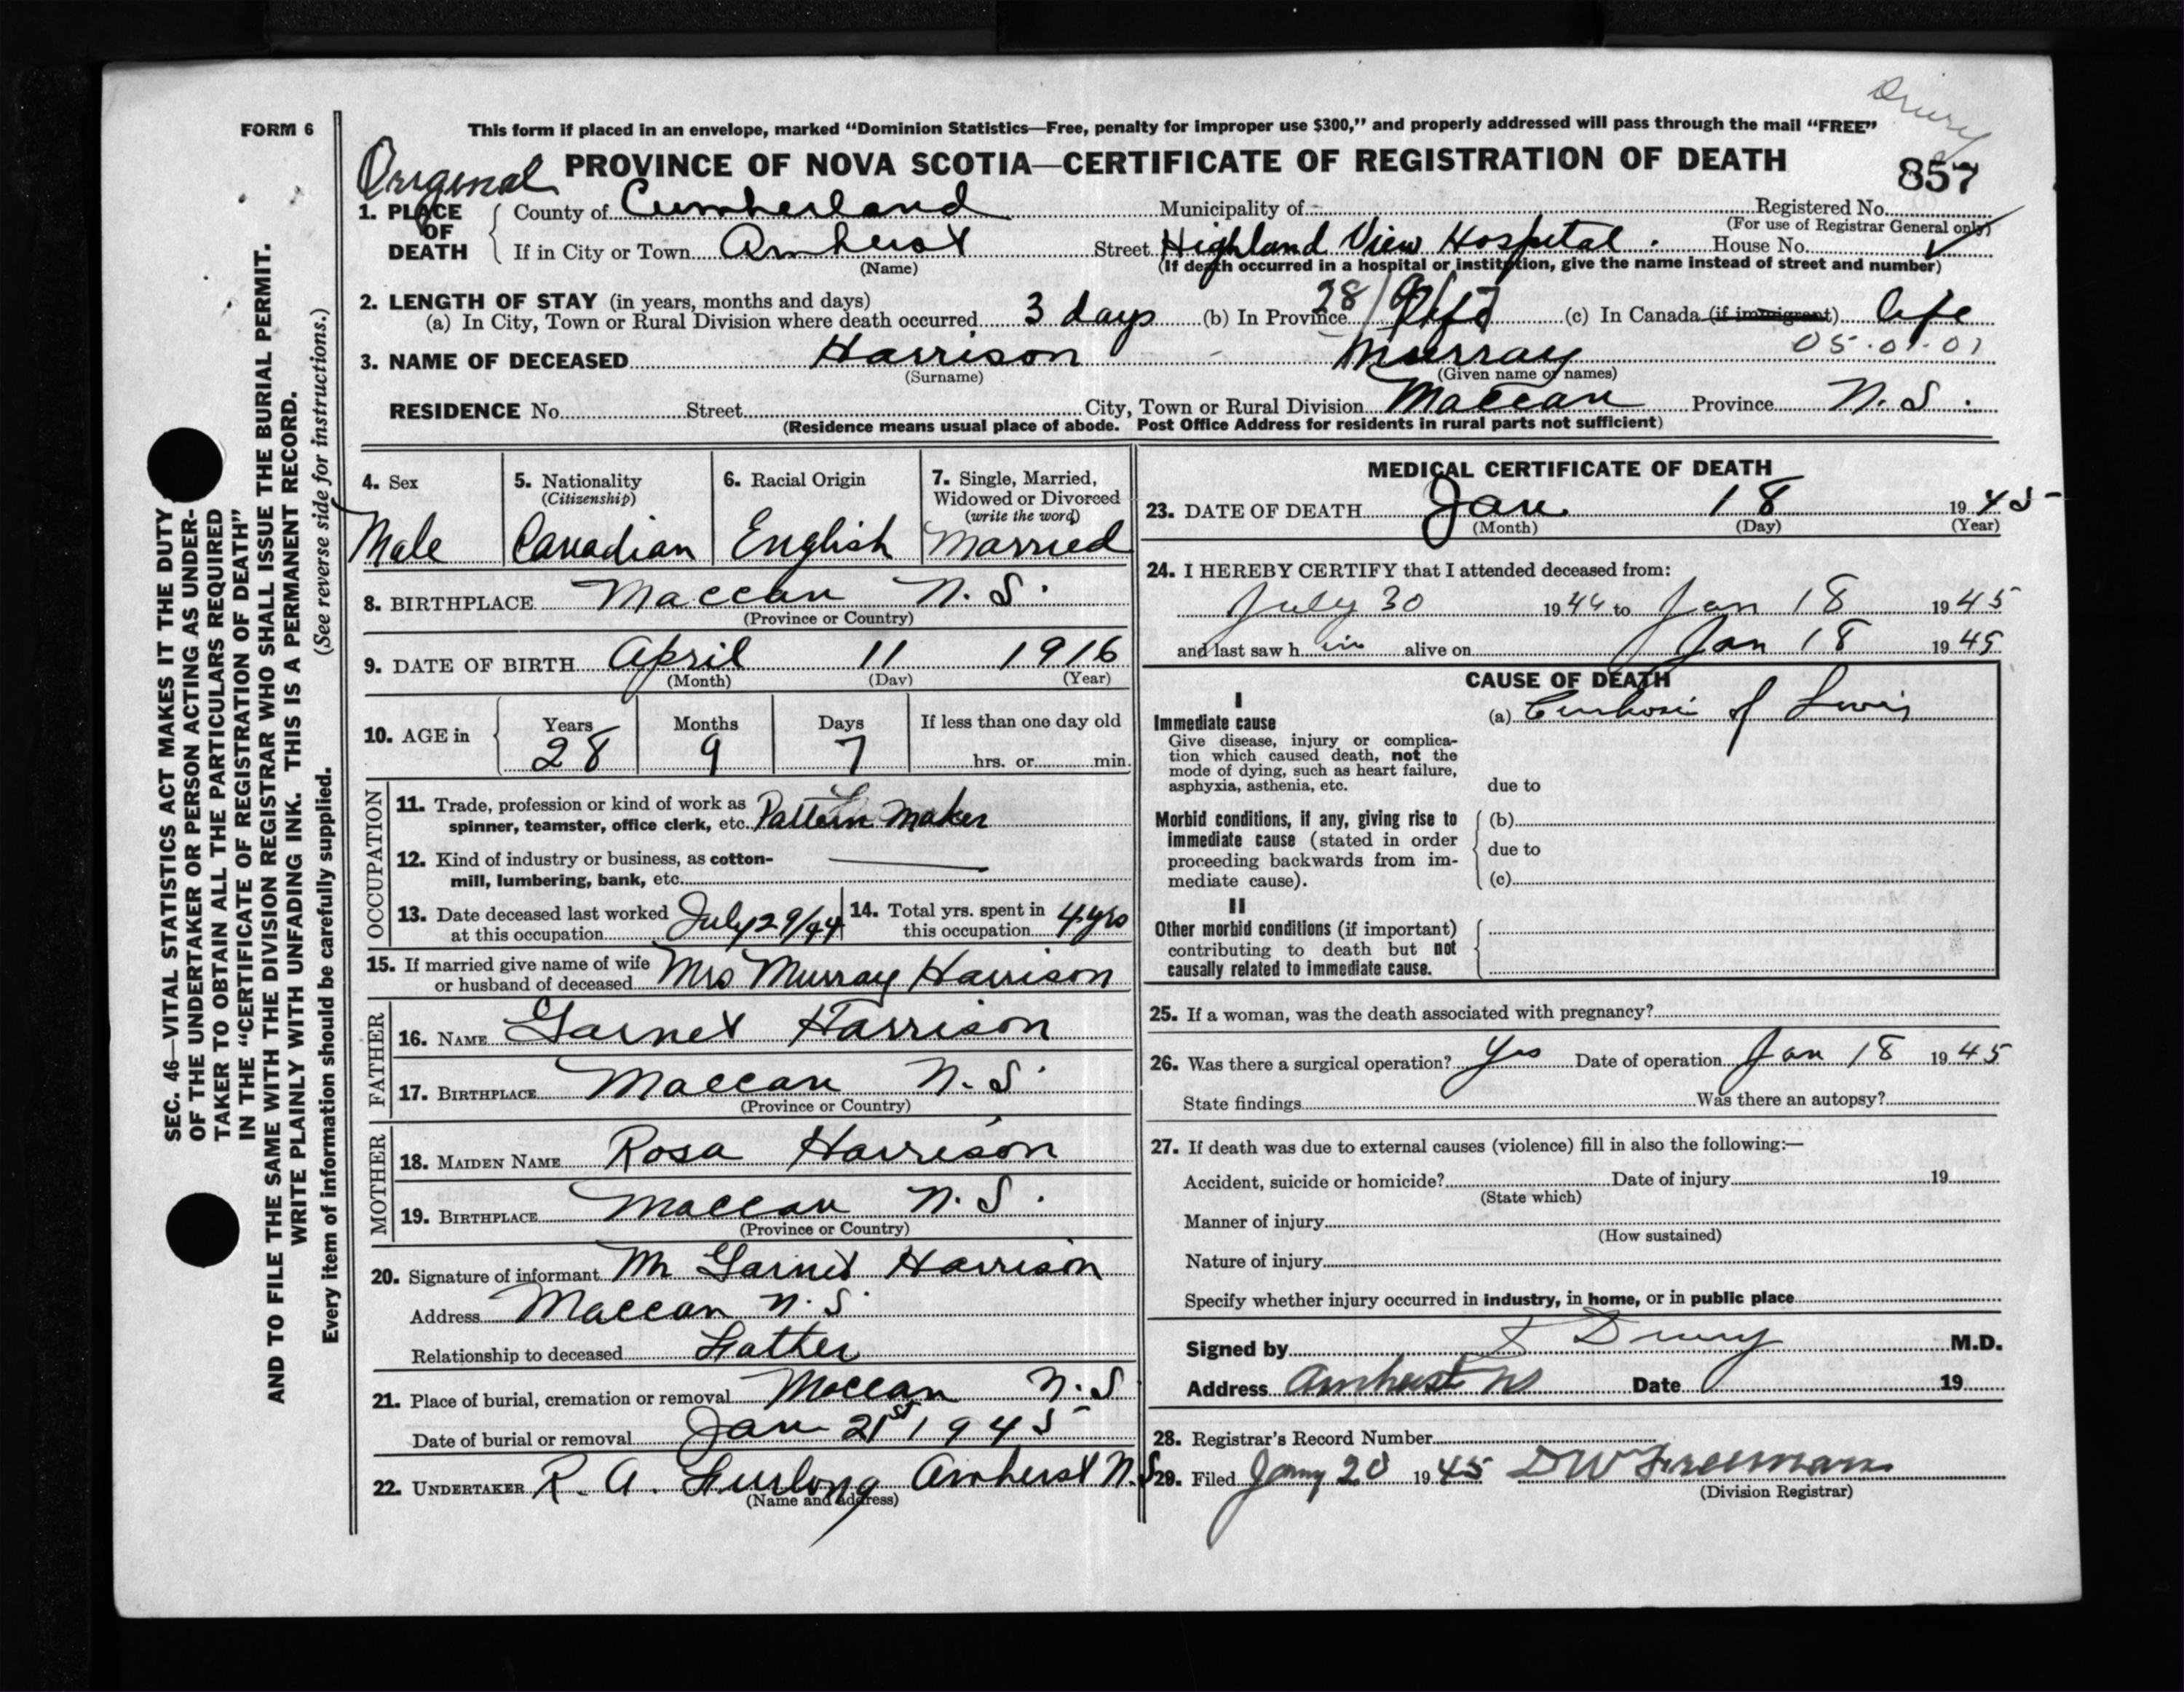 Drury
FORM 6
This form if placed in an envelope, marked "Dominion Statistics—Free, penalty for improper use $300," and properly addressed will pass through the mail "FREE"
Original PROVINCE OF NOVA SCOTIA—CERTIFICATE OF REGISTRATION OF DEATH 857
1. PLACE OF DEATH County of Cumberland Municipality of Registered No.
(For use of Registrar General only)
If in City or Town Amherst Street Highland View Hospital. House No.
(Name) (If death occurred in a hospital or institution, give the name instead of street and number)
2. LENGTH OF STAY (in years, months and days)
(a) In City, Town or Rural Division where death occurred 3 days (b) In Province 28/9/7 life (c) In Canada (if immigrant) life
3. NAME OF DECEASED Harrison Murray 05.01.01
(Surname) (Given name or names)
RESIDENCE No. Street City, Town or Rural Division Maccan Province N.S.
(Residence means usual place of abode. Post Office Address for residents in rural parts not sufficient)
4. Sex Male
5. Nationality (Citizenship) Canadian
6. Racial Origin English
7. Single, Married, Widowed or Divorced (write the word) Married
8. BIRTHPLACE Maccan N.S.
(Province or Country)
9. DATE OF BIRTH April 11 1916
(Month) (Day) (Year)
10. AGE in Years 28 Months 9 Days 7 If less than one day old hrs. or min.
OCCUPATION
11. Trade, profession or kind of work as
spinner, teamster, office clerk, etc. Pattern Maker
12. Kind of industry or business, as cotton-
mill, lumbering, bank, etc.
13. Date deceased last worked
at this occupation July 29/44
14. Total yrs. spent in
this occupation 4 yrs
15. If married give name of wife
or husband of deceased Mrs Murray Harrison
FATHER
16. NAME Garnet Harrison
17. BIRTHPLACE Maccan N.S.
(Province or Country)
MOTHER
18. MAIDEN NAME Rosa Harrison
19. BIRTHPLACE Maccan N.S.
(Province or Country)
20. Signature of informant Mr Garnet Harrison
Address Maccan N.S.
Relationship to deceased Father
21. Place of burial, cremation or removal Maccan N.S
Date of burial or removal Jan 21st 1945
22. UNDERTAKER R. A. Furlong Amherst N.S
(Name and address)
MEDICAL CERTIFICATE OF DEATH
23. DATE OF DEATH Jan 18 1945
(Month) (Day) (Year)
24. I HEREBY CERTIFY that I attended deceased from:
July 30 1944 to Jan 18 1945
and last saw h im alive on Jan 18 1945
CAUSE OF DEATH
I
Immediate cause
Give disease, injury or complica-
tion which caused death, not the
mode of dying, such as heart failure,
asphyxia, asthenia, etc.
(a) Cirrhosis of Liver
due to
Morbid conditions, if any, giving rise to
immediate cause (stated in order
proceeding backwards from im-
mediate cause).
(b)
due to
(c)
II
Other morbid conditions (if important)
contributing to death but not
causally related to immediate cause.
25. If a woman, was the death associated with pregnancy?
26. Was there a surgical operation? Yes Date of operation Jan 18 1945
State findings Was there an autopsy?
27. If death was due to external causes (violence) fill in also the following:—
Accident, suicide or homicide? Date of injury 19
(State which)
Manner of injury
(How sustained)
Nature of injury
Specify whether injury occurred in industry, in home, or in public place
Signed by Drury M.D.
Address Amherst NS Date 19
28. Registrar's Record Number
29. Filed Jany 20 1945 DW Freeman
(Division Registrar)
SEC. 46—VITAL STATISTICS ACT MAKES IT THE DUTY
OF THE UNDERTAKER OR PERSON ACTING AS UNDER-
TAKER TO OBTAIN ALL THE PARTICULARS REQUIRED
IN THE "CERTIFICATE OF REGISTRATION OF DEATH"
AND TO FILE THE SAME WITH THE DIVISION REGISTRAR WHO SHALL ISSUE THE BURIAL PERMIT.
WRITE PLAINLY WITH UNFADING INK. THIS IS A PERMANENT RECORD.
Every item of information should be carefully supplied. (See reverse side for instructions.)